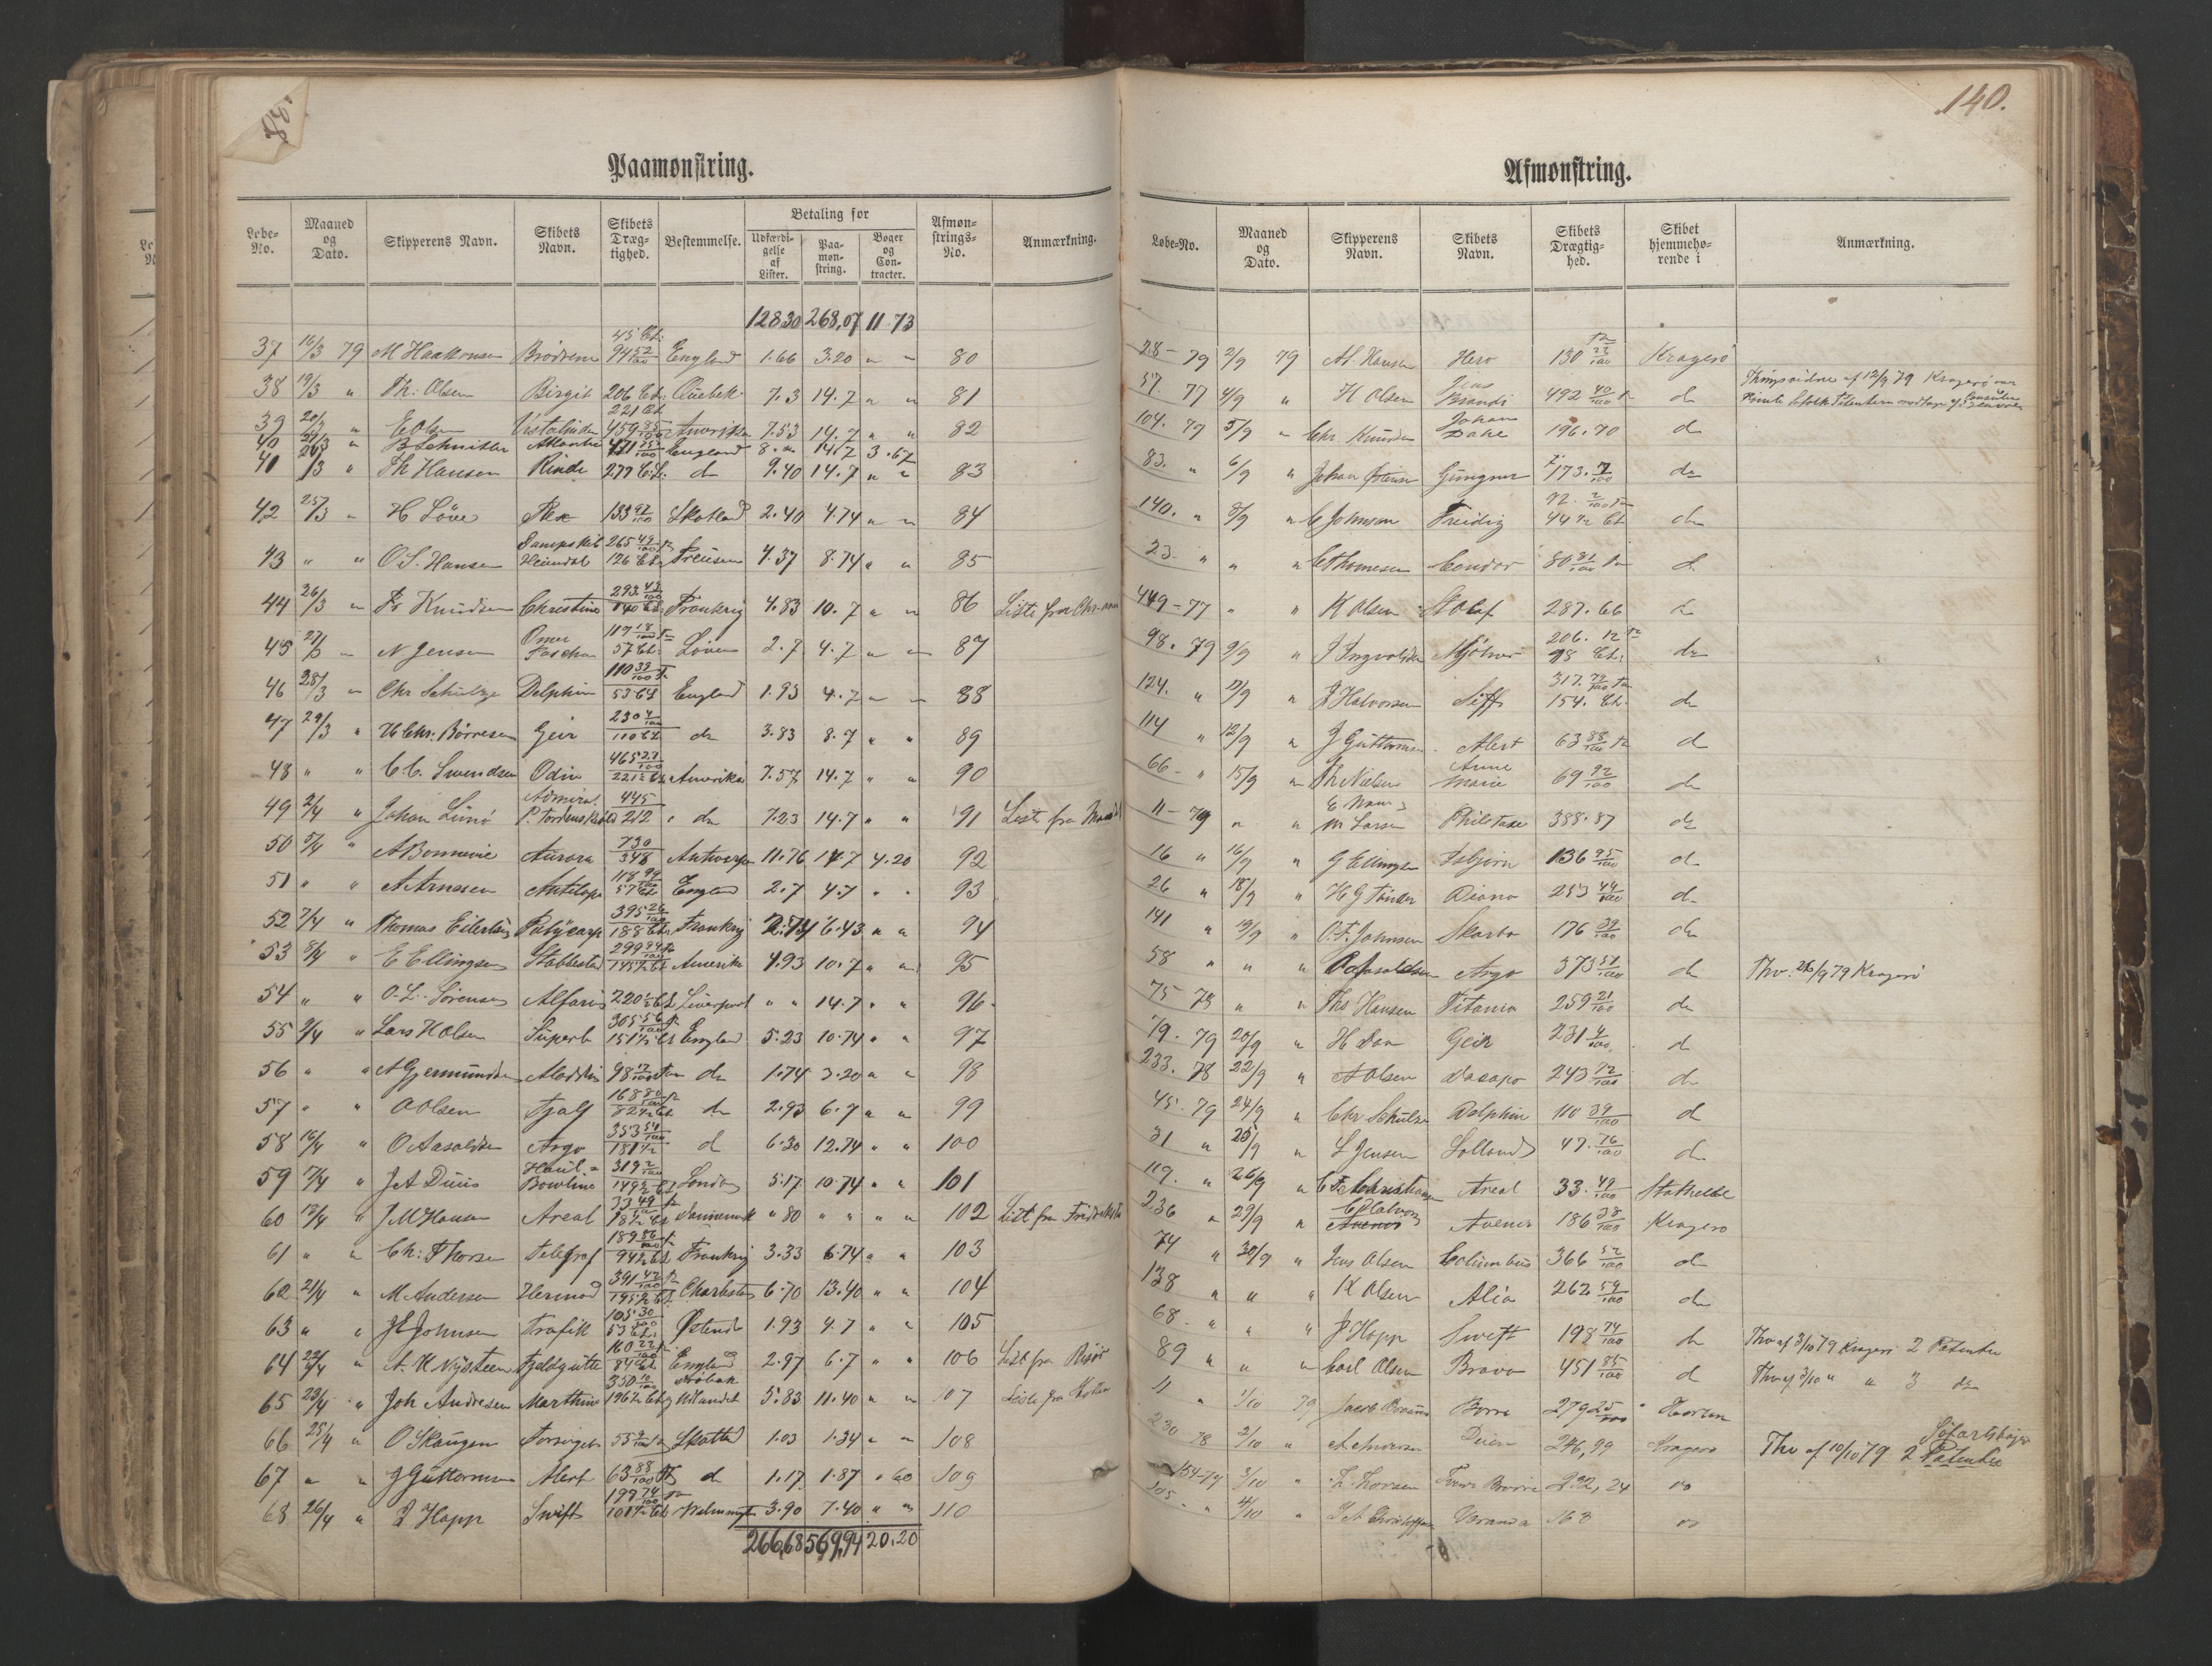 140.
Paamønstring.
Løbe-No. Maaned og Dato. Skipperens Navn. Skibets Navn. Skibets Dræg-tighed. Bestemmelse. Betaling for Udfærdi-gelse af Lister. Paa-møn-string. Bøger og Con-tracter. Afmøn-strings-No. Anmærkning.
128.30 268,07 11.73
37 16/3 79 M Haakonsen Brødrene 45 Cl. 94 52/100 England 1.66 3.20 " " 80
38 19/3 " Th: Olsen Birgit 206 Cl. Quebek 7.3 14.7 " " 81
39 20/3 " E Olsen 221 Cl. 459 85/100 Amerika 7.53 14.7 " " 82
40 21/3 " B Schnitler Atlantic 471 England 8. " 14.7 3.67
41 /3 " Th Hansen Rinde 277 Cl. do 9.40 14.7 " " 83
42 25/3 " H Löve Rex 133 92/100 Skotland 2.40 4.74 " " 84
43 " " O.S. Hansen Dampskib Heimdal 265 49/100 126 Cl. Preusen 4.37 8.74 " " 85
44 26/3 " Fr Knudsen Christine 293 43/100 140 Cl. Frankrig 4.83 10.7 " " 86 Liste fra
45 27/3 " N Jensen Omer Pascha 119 18/100 57 Cl. 2.7 4.7 " " 87
46 28/3 " Chr Schultze Delphin 110 39/100 53 Cl England 1.93 4.7 " " 88
47 29/3 " H Chr. Børresen Geir 230 4/100 110 Cl do 3.83 8.7 " " 89
48 " " C.C. Svendsen Odin 465 27/100 221 1/2 Cl Amerika 7.57 14.7 " " 90
49 2/4 " Johan Lunö Admiral P. Tordenskiold 445 212 " do 7.23 14.7 " " 91 Liste fra
50 5/4 " A Bonnevie Aurora 730 348 Antwerpen 11.76 14.7 4.20 92
51 " " A Arnesen Antilope 118 94/100 57 Cl. England 2.7 4.7 " " 93
52 7/4 " Thomas Eilertsen Polycarp 395 26/100 188 Cl. Frankrig 2.74 6.43 " " 94
53 8/4 " E Ellingsen Stabbestad 299 94/100 145 1/2 Cl Amerika 4.93 10.7 " " 95
54 " " O.L. Sörensen Alfarin 220 1/2 Cl Liverpool " " 14.7 " " 96
55 9/4 " Lars H Olsen Superb 305 56/100 151 1/2 Cl England 5.23 10.74 " " 97
56 " " A Gjermundsen Aladdin 98 12/100 ton do 1.74 3.20 " " 98
57 " " O Olsen Fjalf 168 80/100 82 1/2 Cl do 2.93 6.7 " " 99
58 16/4 " O Aasoldsen Argo 353 51/100 181 1/2 d 6.30 12.74 " " 100
59 17/4 " J A Duus Haul-Bowline 319 2/100 149 1/2 Cl London 5.17 10.74 " " 101
60 18/4 " J M Hansen Areal 33 49/100 18 1/2 Cl Dannemark " 80 " " " " 102 List fra Fridrikstad
61 " " Ch: Thorsen Telegraf 189 86/100 94 1/2 Cl Frankrig 3.33 6.74 " " 103
62 21/4 " M Andersen Hermod 391 42/100 195 1/2 Cl. Charleston 6.70 13.40 " " 104
63 " " J E Johnsen Trafik 105 30/100 53 Cl. Ostende 1.93 4.7 " " 105
64 22/4 " A. K Nysteen Fjeldgutten 160 22/100 84 Cl. England 2.97 6.7 " " 106 List fra Risör
65 23/4 " Joh Andresen Marthine 350 10/100 196 1/2 Cl Dröbak og Udlandet 5.83 11.40 " " 107 Liste fra Horten
66 25/4 " O Skaugen Forsöget 55 Skotland 1.03 1.34 " " 108
67 " " J Guttormsen Alert 63 88/100 d 1.17 1.87 " 60 109
68 26/4 " J Hopp Swift 199 74/100 101 1/2 Cl. 3.90 7.40 " " 110
266,68 569,94 20.20
Afmønstring.
Løbe-No. Maaned og Dato. Skipperens Navn. Skibets Navn. Skibets Drægtig-hed. Skibet hjemmehø-rende i Anmærkning.
28 - 79 2/9 79 Al. Hansen Hero 130 22/100 Kragerø
57. 77 4/9 " H Olsen Jens Brandi 492 40/100 d af 12/9 79 Kragerö
104. 79 5/9 " Chr Knudsen Johan Dahl 196.70 d
83. " 6/9 " Johan Gungner 173. 7/100 do
140. " 8/9 " C Johnsen Freidig 92. 2/100 44 1/2 Cl. do
23 " " " C Thomesen Condor 80 81/100 d
449 - 77 " " K Olsen St Olaf 287.66 d
98. 79 9/9 " J Ingvoldsen Mjölner 206. 12 98 Cl. do
124. " 11/9 " J Halvorsen Siff 317. 72/100 154. Cl. do
114 " 12/9 " J Guttormsen Alert 63 88/100 d
66 - " 15/9 " Th Nielsen Anne Marie 69 92/100 do
11 - 79 " " M Larsen Philotaxe 388.87 do
16 " 16/9 " G Ellingsen Asbjørn 136 95/100 d
26 " 18/9 " H G Diana 253 44/100 d
141 " 19/9 " O.F. Johnsen Skarbo 176 39/100 do
58 " " " O Aasoldsen Argo 373 51/100 do Thv. 26/9 79 Kragerö
75 78 " " Ths Hansen Titania 259 21/100 do
79. 79 20/9 " H Dan Geir 231 4/100 d
233. 78 22/9 " A Olsen Dacapo 243 92/100 do
45. 79 24/9 " Chr Schulze Delphin 110 39/100 d
31 " 25/9 " L Jensen Lolland 47. 76/100 d
119. " 26/9 " C F Christiansen Areal 33. 49/100 Stathelle
236 " 29/9 " Avenir 186 38/100 Kragerø
74 " 30/9 " Jens Olsen Columbus 366 52/100 do
138 " " " K Olsen Alia 262 59/100 do
68 - " " " J Hopp Swift 198 74/100 do Thv af 3/10 79 Kragerö 2 Patenter
89 " " " Carl Olsen Bravo 451 85/100 d Thv af 3/10 " " 3 do
11 " 1/10 79 Jacob Borre 279 25/100 Horten
230 78 2/10 " A Andersen 276,99 Kragerø Thv af 10/10 79 2 Patenter
154-79 3/10 " L. Thorsen 232,24
105 " " 4/10 " J A Christoffersen Veranda 163